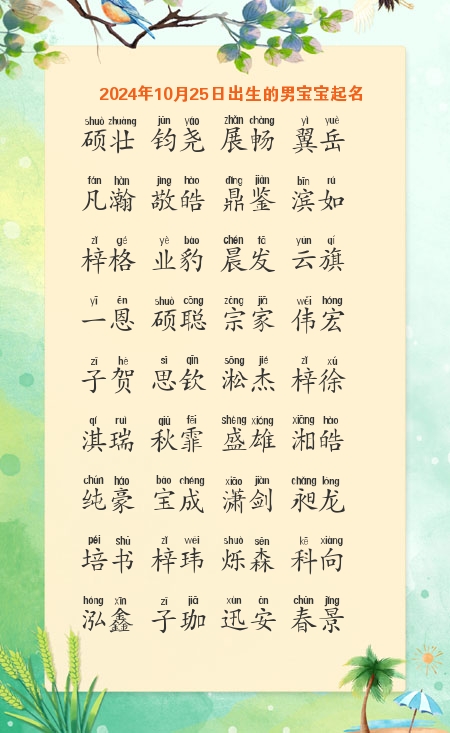 2024年10月25日出生的男宝宝起名
shuò zhuàng jūn yáo zhǎn chàng yì yuè
硕壮 钧尧 展畅 翼岳
fán hàn jìng hào dǐng jiàn bīn rú
凡瀚 敬皓 鼎鉴 滨如
zǐ gé yè bào chén fā yún qí
梓格 业豹 晨发 云旗
yī ēn shuò cōng zōng jiā wěi hóng
一恩 硕聪 宗家 伟宏
zǐ hè sī qīn sōng jié zǐ xú
子贺 思钦 淞杰 梓徐
qí ruì qiū fēi shèng xióng xiāng hào
淇瑞 秋霏 盛雄 湘皓
chún háo bǎo chéng xiāo jiàn chǎng lóng
纯豪 宝成 潇剑 昶龙
péi shū zǐ wěi shuò sēn kē xiàng
培书 梓玮 烁森 科向
hóng xīn zǐ jiā xùn ān chūn jǐng
泓鑫 子珈 迅安 春景